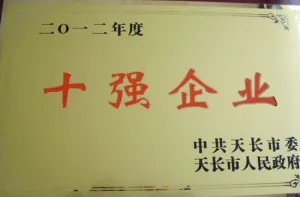 二〇一二年度
十强企业
中共天长市委
天长市人民政府